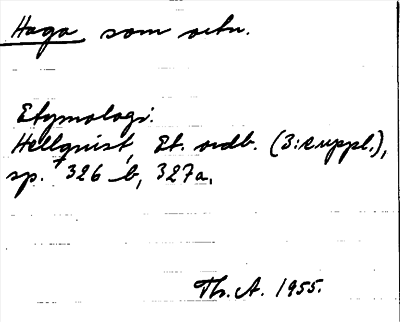 Haga som ortn.
Etymologi:
Hellquist, Et. ordb. (3: suppl.),
sp. 326 b, 327a.
Th. A. 1955.